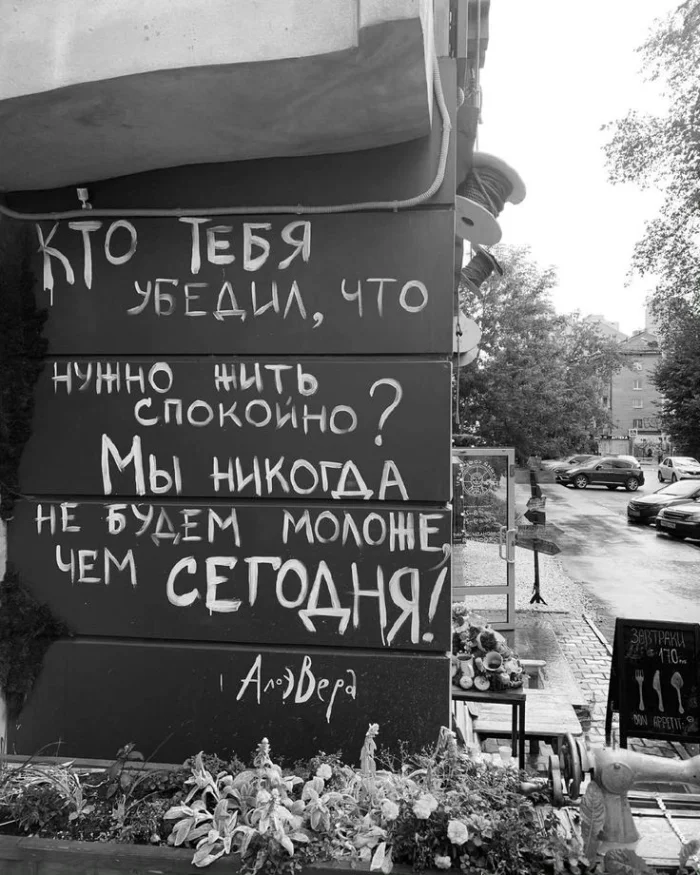 Кто Тебя
убедил, что
нужно жить
спокойно?
Мы никогда
не будем моложе,
чем сегодня!
АлоэВера
ЗАВТРАКИ
170
BON APPETIT